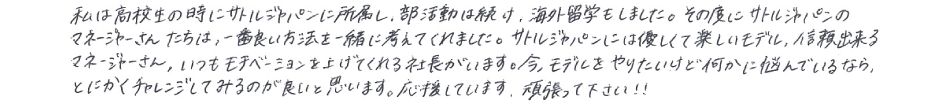 私は高校生の時にサトルジャパンに所属し、部活動は続け、海外留学もしました。その度にサトルジャパンの
マネージャーさんたちは、一番良い方法を一緒に考えてくれました。サトルジャパンには優しくて楽しいモデル、信頼出来る
マネージャーさん、いつもモチベーションを上げてくれる社長がいます。今、モデルをやりたいけど何かに悩んでいるなら、
とにかくチャレンジしてみるのが良いと思います。応援しています、頑張って下さい!!